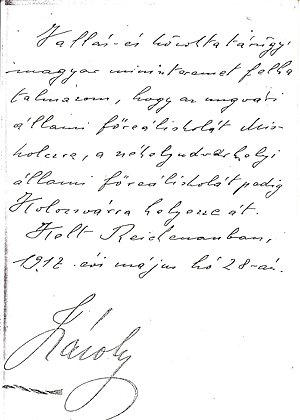 Vallás- és közoktatásügyi
magyar ministeremet felha-
talmazom, hogy az ungvári
állami főreáliskolát Mis-
kolczra, a székelyudvarhelyi
állami főreáliskolát pedig
Kolozsvárra helyezze át.
Kelt Reichenauban,
1917. évi május hó 28-án.
Károly